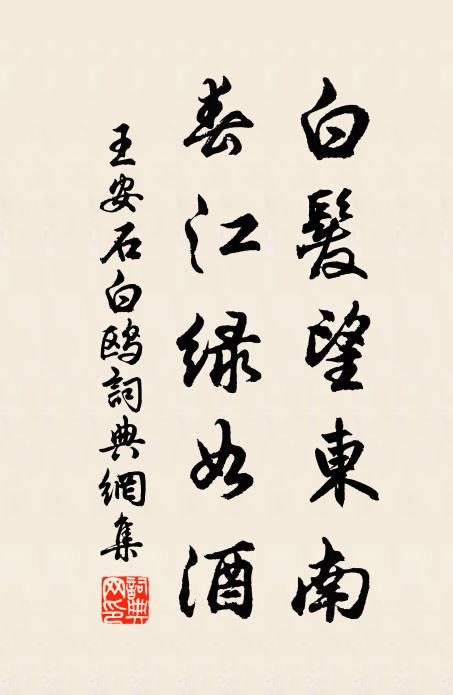 白髮望東南
春江緑如酒
王安石白鷗詞典網集
詞典網印